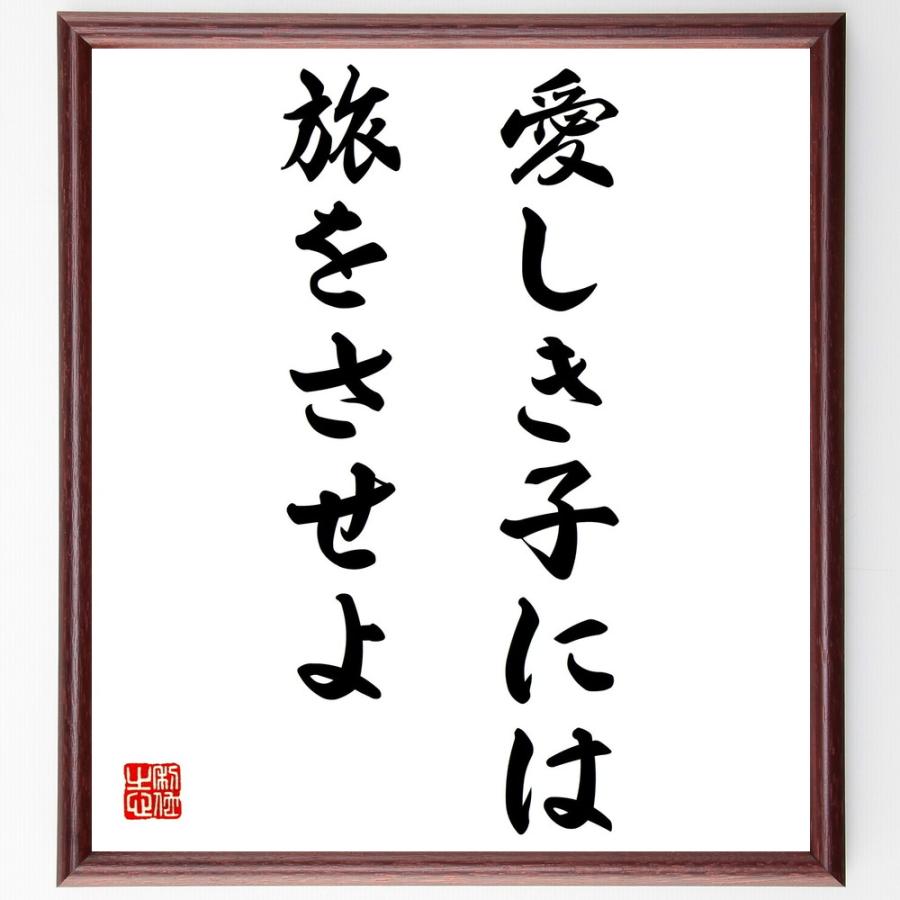 愛しき子には
旅をさせよ